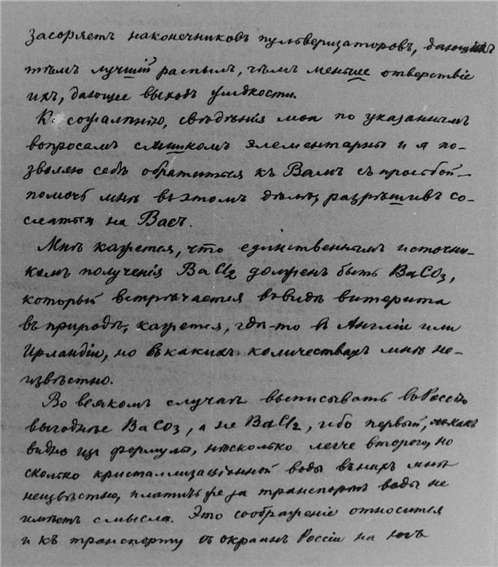 засоряетъ наконечниковъ пульверизаторовъ, дающихъ
тѣмъ лучшій распылъ, чѣмъ меньше отверстіе
ихъ, дающее выходъ жидкости.
Къ сожалѣнію, свѣдѣнія мои по указаннымъ
вопросамъ слишкомъ элементарны и я по-
зволяю себѣ обратиться къ Вамъ съ просьбой-
помочь мнѣ въ этомъ дѣлѣ, разрѣшивъ со-
слаться на Васъ.
Мнѣ кажется, что единственнымъ источни-
комъ полученія BaCl2 долженъ быть BaCO3,
который встрѣчается въ видѣ витерита
въ природѣ, кажется, гдѣ-то въ Англіи или
Ирландіи, но въ какихъ количествахъ мнѣ не-
извѣстно.
Во всякомъ случаѣ выписывать въ Россію
выгоднѣе BaCO3, а не BaCl2, ибо первый, какъ
видно изъ формулъ, нѣсколько легче второго, но
сколько кристаллизаціонной воды въ нихъ мнѣ
неизвѣстно, платить же за транспортъ воды не
имѣетъ смысла. Это соображеніе относится
и къ транспорту съ окраинъ Россіи на югъ